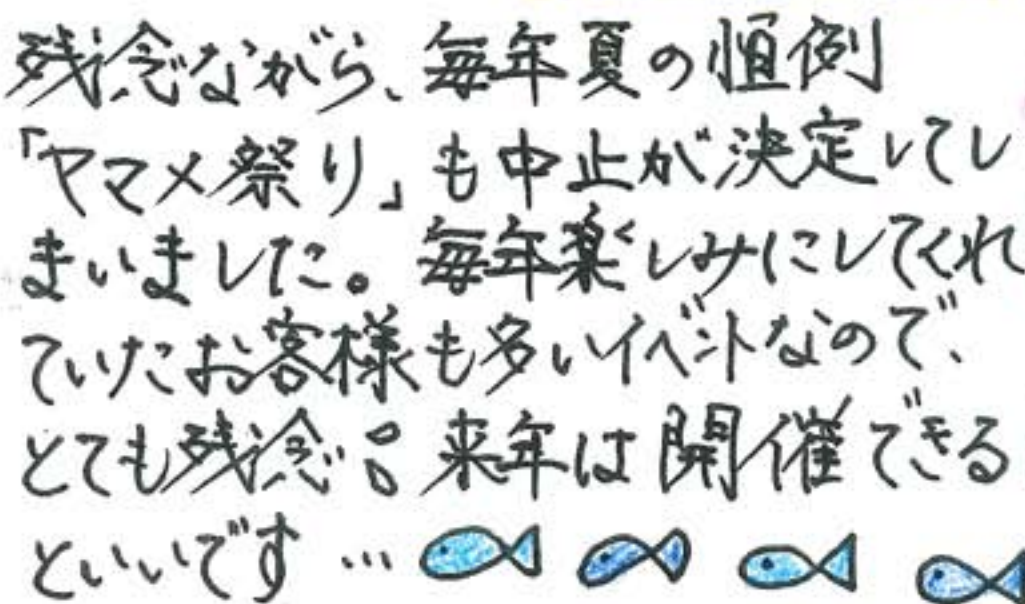 残念ながら、毎年夏の恒例
「ヤマメ祭り」も中止が決定してし
まいました。毎年楽しみにしてくれ
ていたお客様も多いイベントなので、
とても残念。来年は開催できる
といいです…